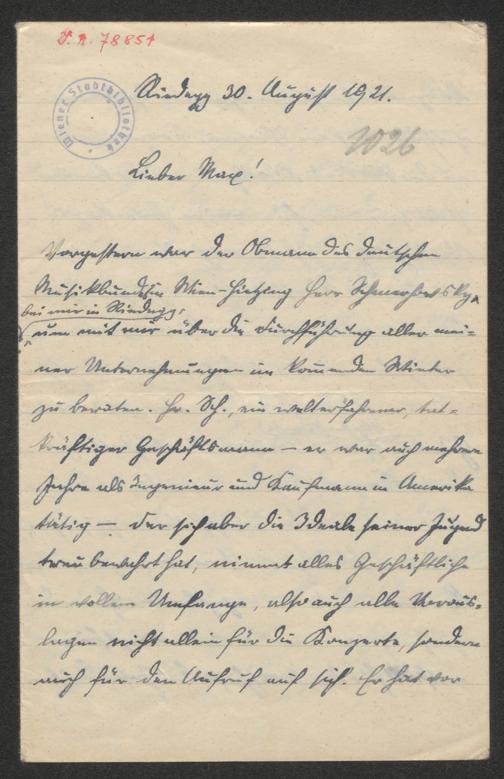 J. N. 78851
Wiener Stadtbibliothek
Riedegg 30. August 1921.
1026
Lieber Max!
Vorgestern war der Obmann des deutschen
Musikbundes in Wien-Hietzing Herr
bei mir in Riedegg,
um mit mir über die Durchführung aller mei-
ner Unternehmungen im kommenden Winter
zu beraten. Hr. Sch., ein welterfahrener, tat-
kräftiger Geschäftsmann – er war auch mehrere
Jahre als Ingenieur und Kaufmann in Amerika
tätig – der sich aber die Ideale seiner Jugend
treu bewahrt hat, nimmt alles Geschäftliche
in vollem Umfange, also auch alle Voraus-
lagen nicht allein für die Konzerte, sondern
auch für den Aufruf auf sich. Er hat vor